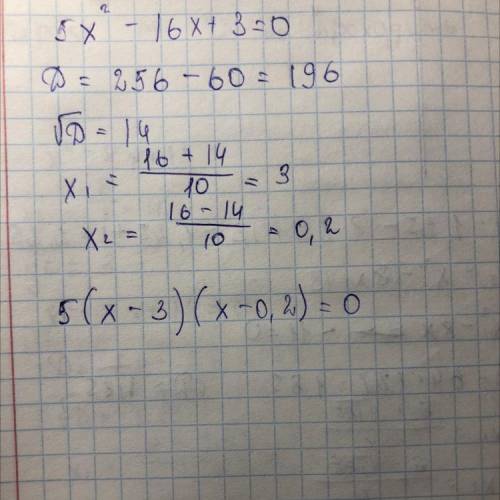 5x² - 16x + 3 = 0
D = 256 - 60 = 196
√D = 14
x₁ = (16 + 14)/10 = 3
x₂ = (16 - 14)/10 = 0,2
5(x - 3)(x - 0,2) = 0